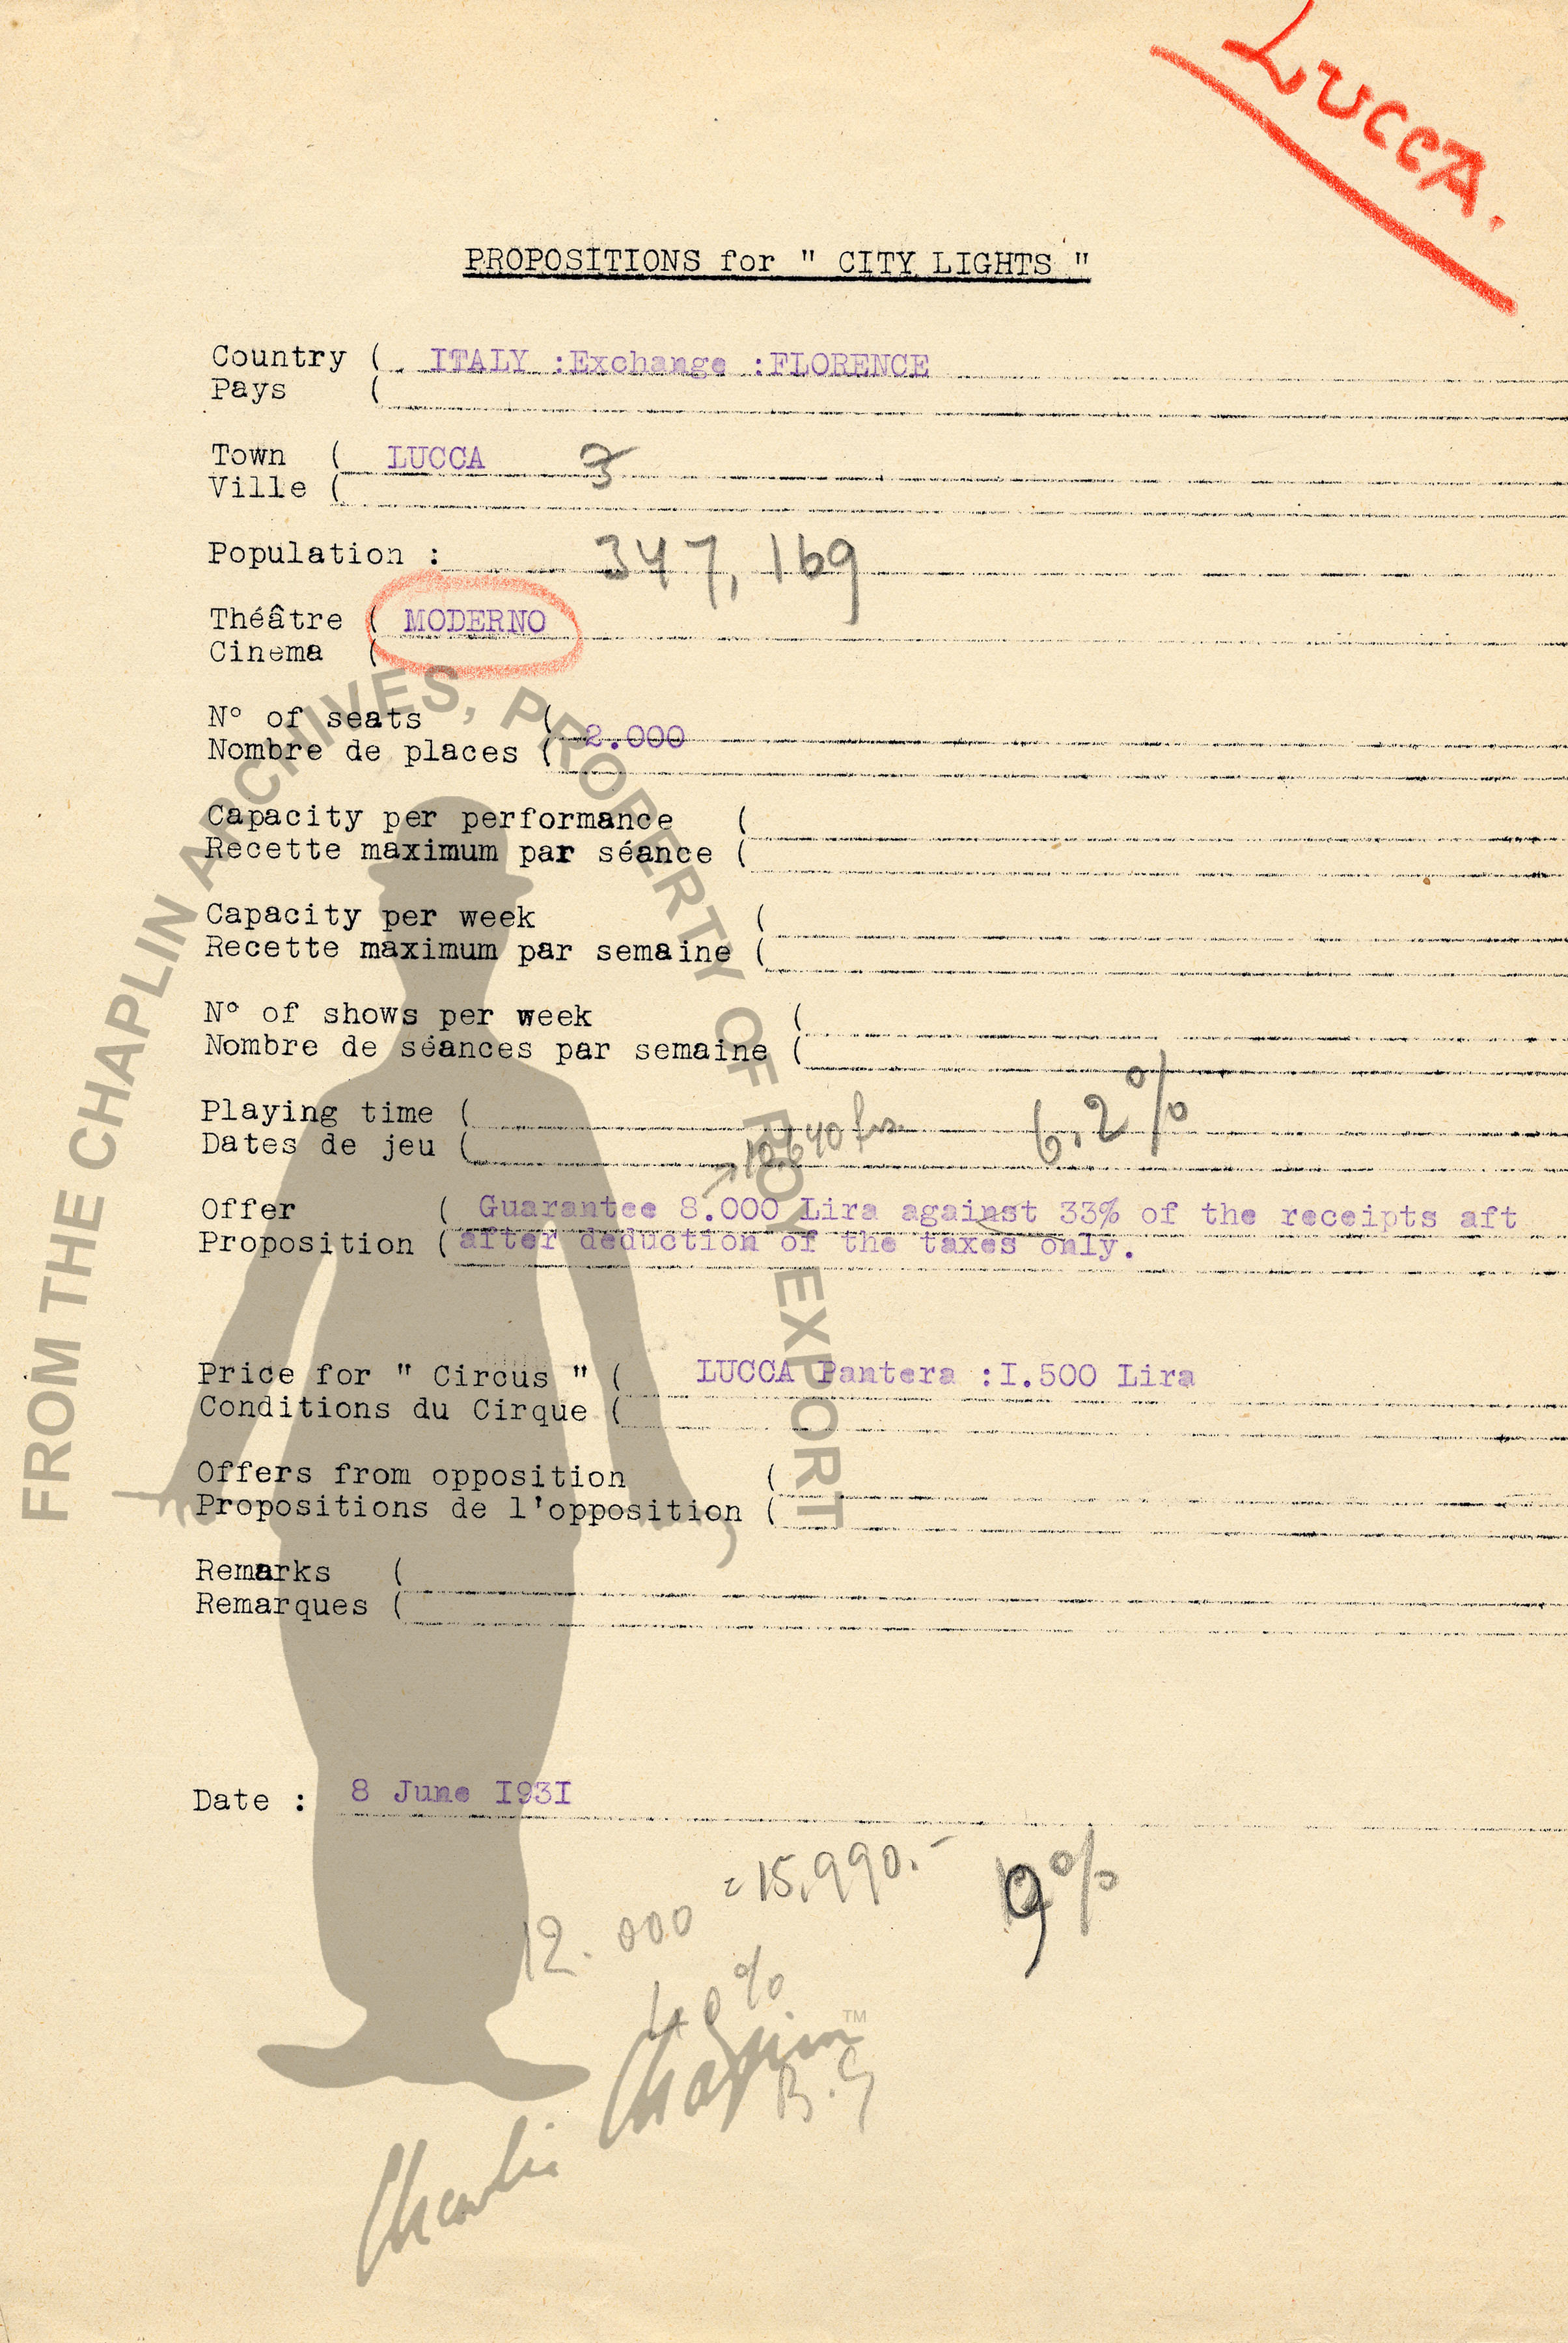 LUCCA.
PROPOSITIONS for " CITY LIGHTS "
Country ( ITALY :Exchange :FLORENCE
Pays (
Town ( LUCCA 3
Ville (
Population : 347,169
Théâtre ( MODERNO
Cinema (
N° of seats (
Nombre de places ( 2.000
Capacity per performance (
Recette maximum par séance (
Capacity per week (
Recette maximum par semaine (
N° of shows per week (
Nombre de séances par semaine (
Playing time ( 6,2%
Dates de jeu ( 10,640 frs.
Offer ( Guarantee 8.000 Lira against 33% of the receipts aft
Proposition ( after deduction of the taxes only.
Price for " Circus " ( LUCCA Pantera :I.500 Lira
Conditions du Cirque (
Offers from opposition (
Propositions de l'opposition (
Remarks (
Remarques (
Date : 8 June I93I
12.000 = 15,990.- 9%
40%
B.G
FROM THE CHAPLIN ARCHIVES, PROPERTY OF ROY EXPORT
Charlie Chaplin TM